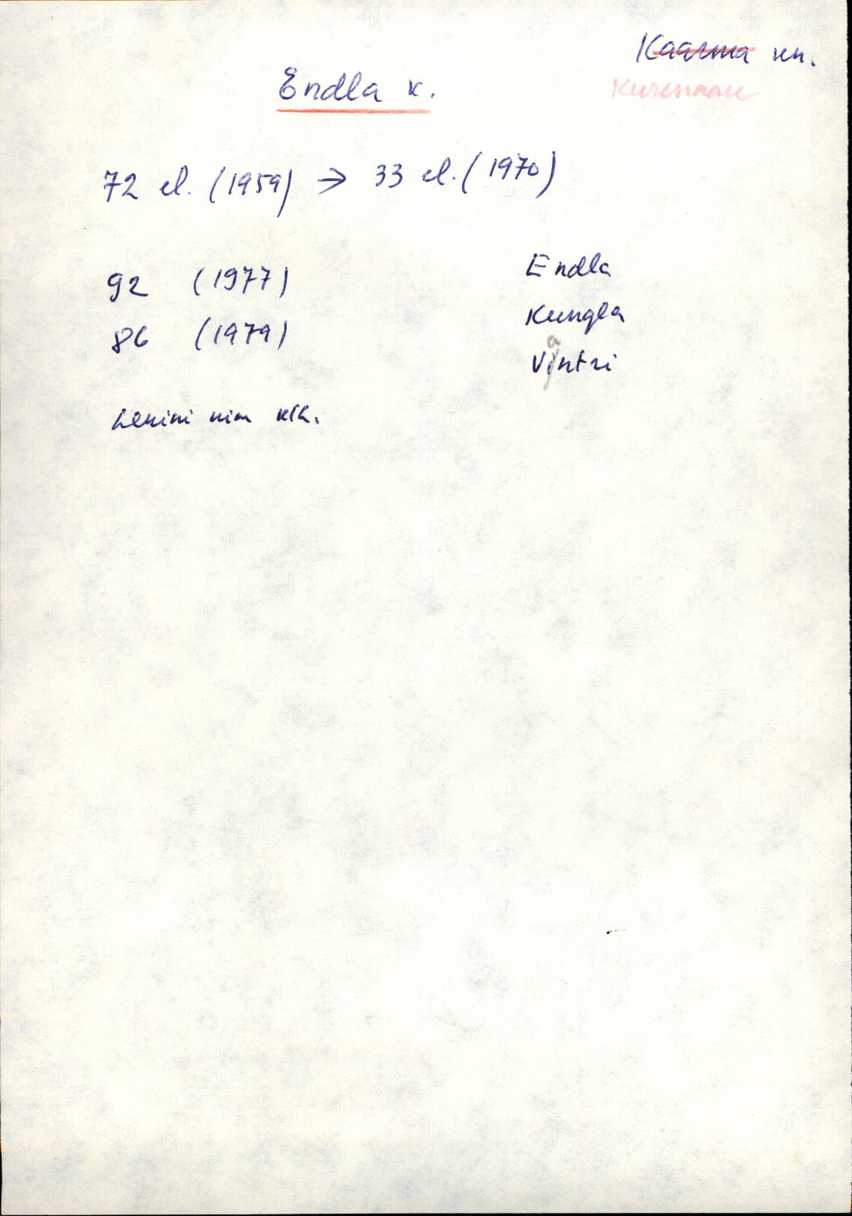 Kaarma kn.
Kuressaare
Endla k.
72 el. (1959) → 33 el. (1970)
92 (1977)
86 (1979)
Lenini nim kh.
Endla
Kungla
Vantri